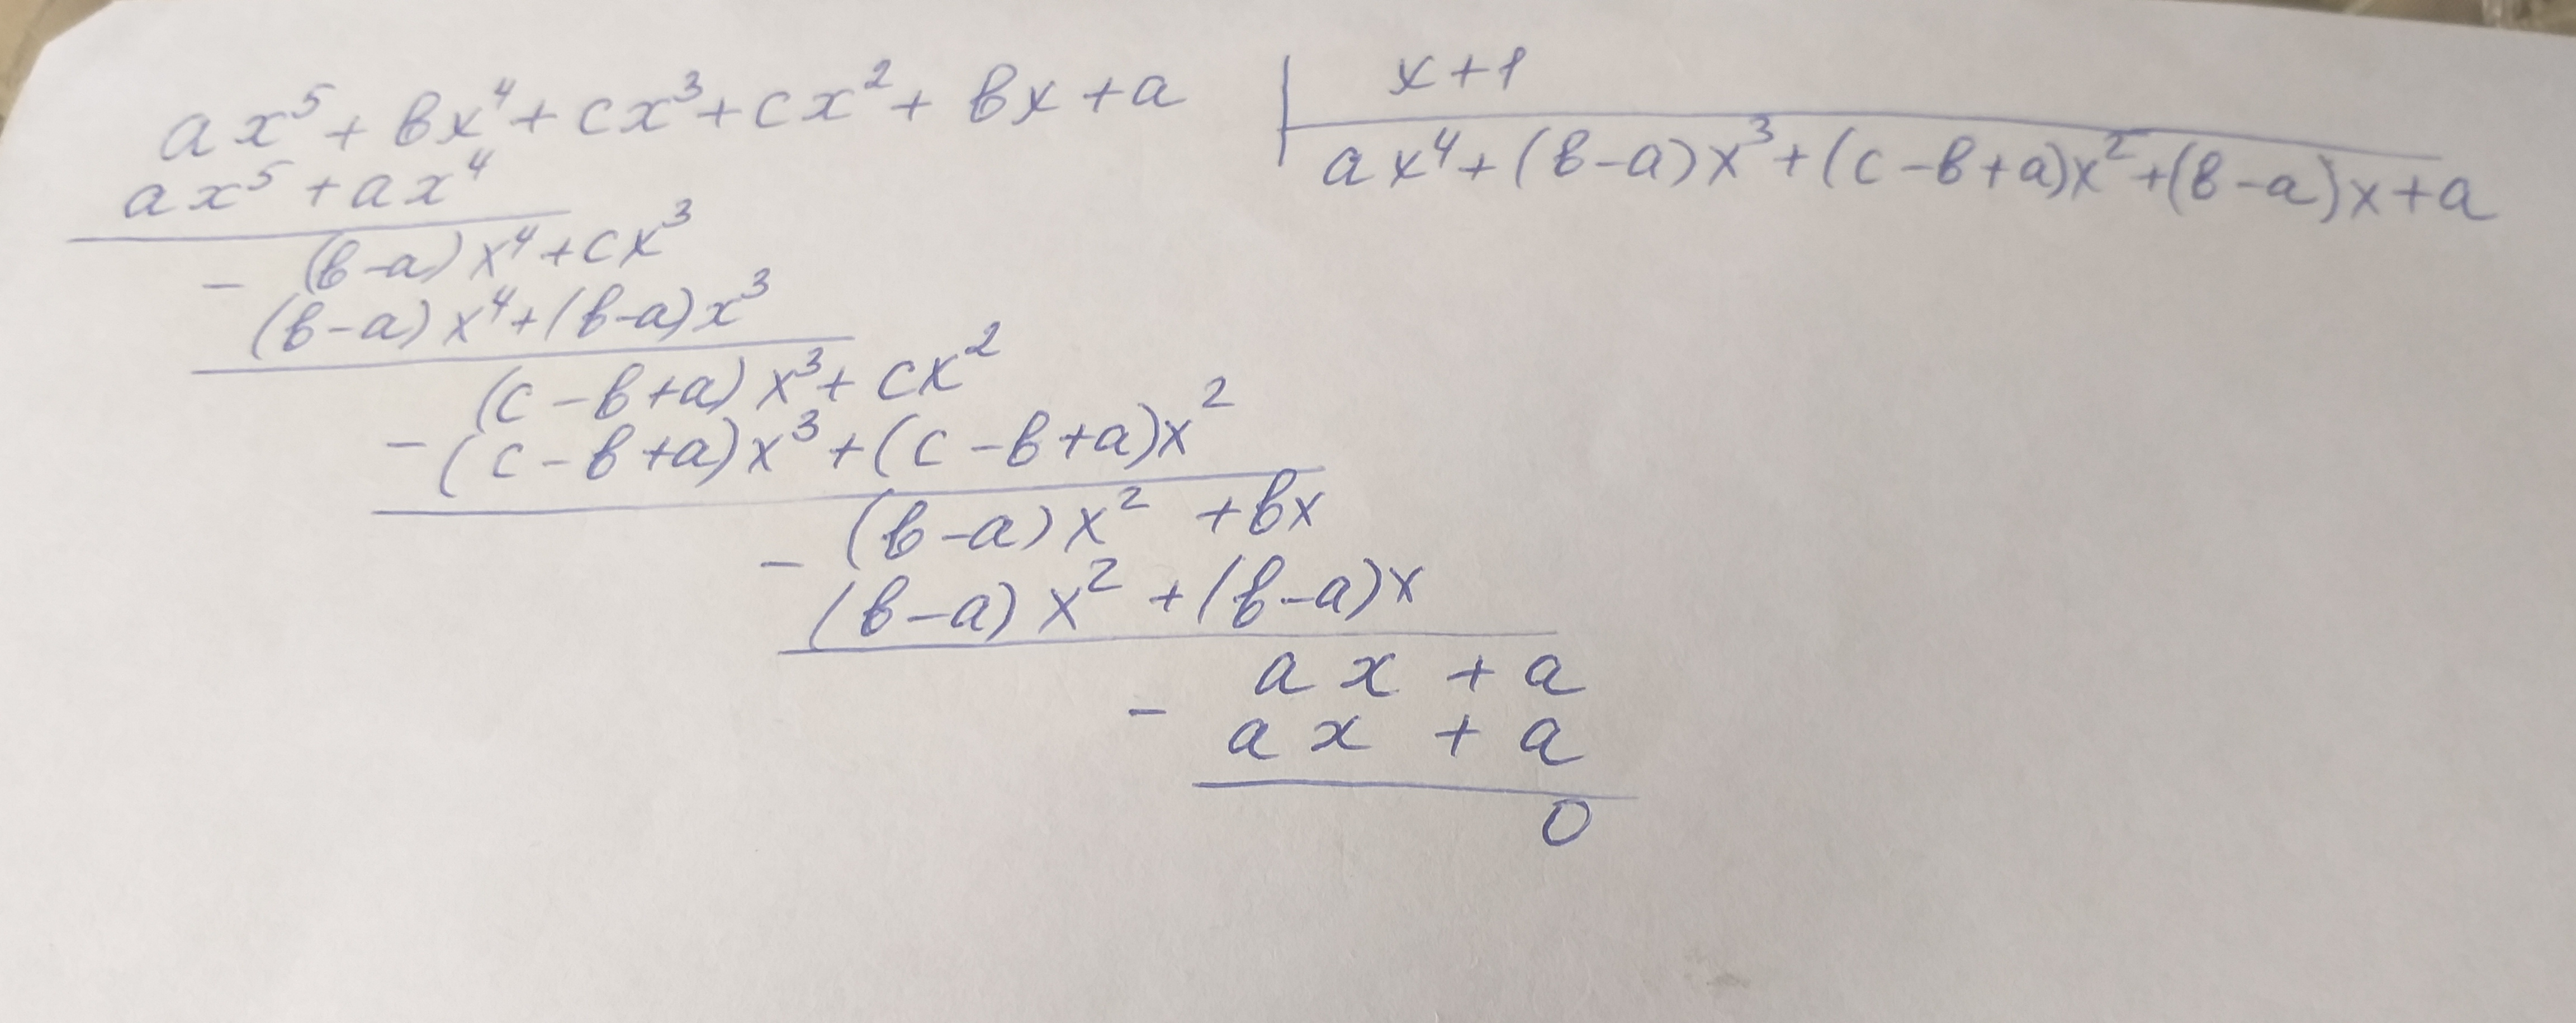 ax⁵ + bx⁴ + cx³ + cx² + bx + a | x + 1
ax⁵ + ax⁴ | ax⁴ + (b - a)x³ + (c - b + a)x² + (b - a)x + a
- (b - a)x⁴ + cx³
(b - a)x⁴ + (b - a)x³
(c - b + a)x³ + cx²
- (c - b + a)x³ + (c - b + a)x²
- (b - a)x² + bx
(b - a)x² + (b - a)x
- ax + a
ax + a
0